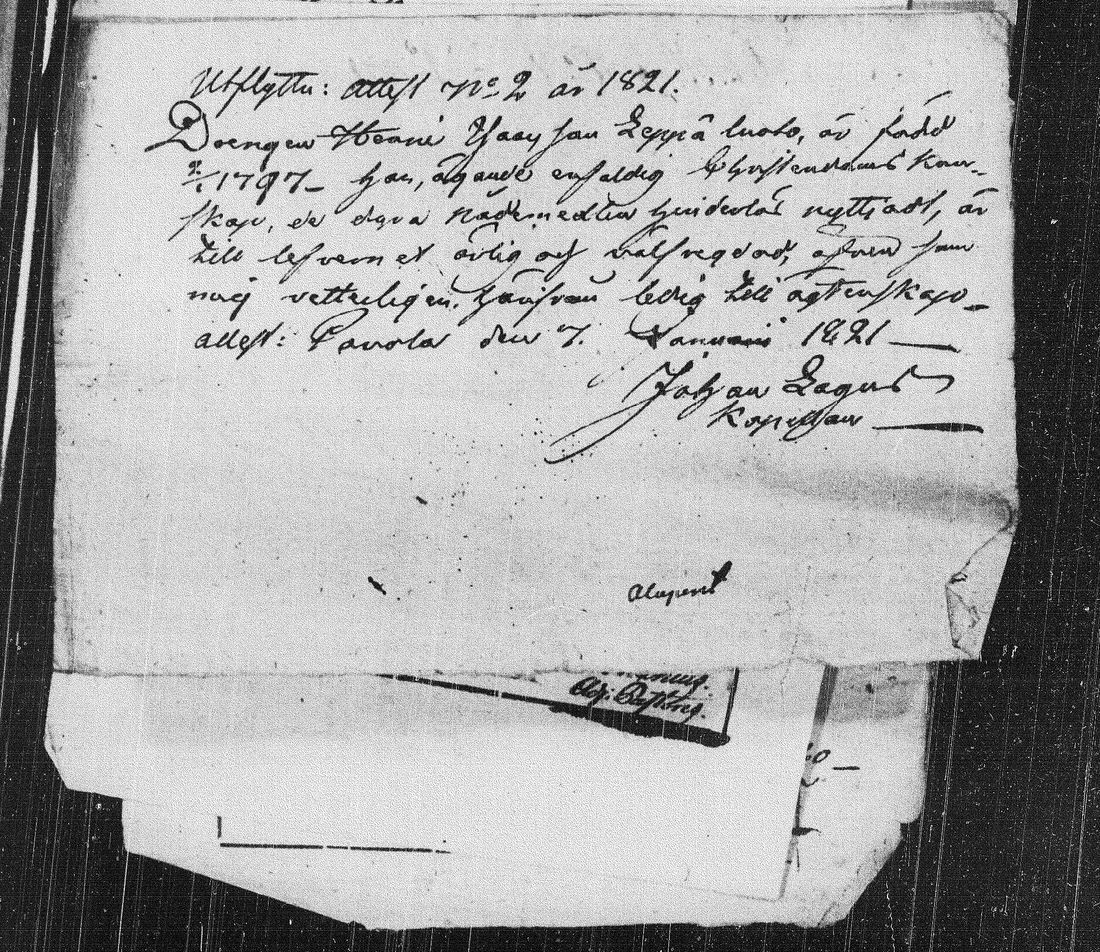 Utflyttn: attest No 2 år 1821.
Drengen Henric Isacsson Leppäluoto, är född
1797 – han, ägande enfaldig Christendoms kun-
skap, de dyra nådemedlen hinderlöst nyttjadt, är
till lefvernet ärlig och välfregdad, äfven som
mig vetterligen, härifrån ledig till ägtenskap –
attest: Pavola den 7. Januari 1821 —
Johan Lagus
Kapellan —
Alopeus
Adj: Past: